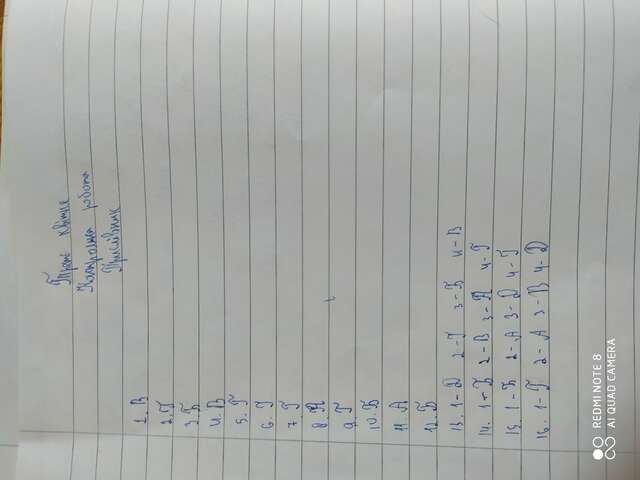 Третє квітня
Контрольна робота
Прислівник
1. В
2. Г
3. Б
4. В
5. Г
6. Г
7. Г
8. А
9. Г
10. Б
11. А
12. Б
13. 1-Д 2-Г 3-Б 4-В
14. 1-Б 2-В 3-Д 4-Г
15. 1-Б 2-А 3-Д 4-Г
16. 1-Г 2-А 3-В 4-Д
REDMI NOTE 8
AI QUAD CAMERA